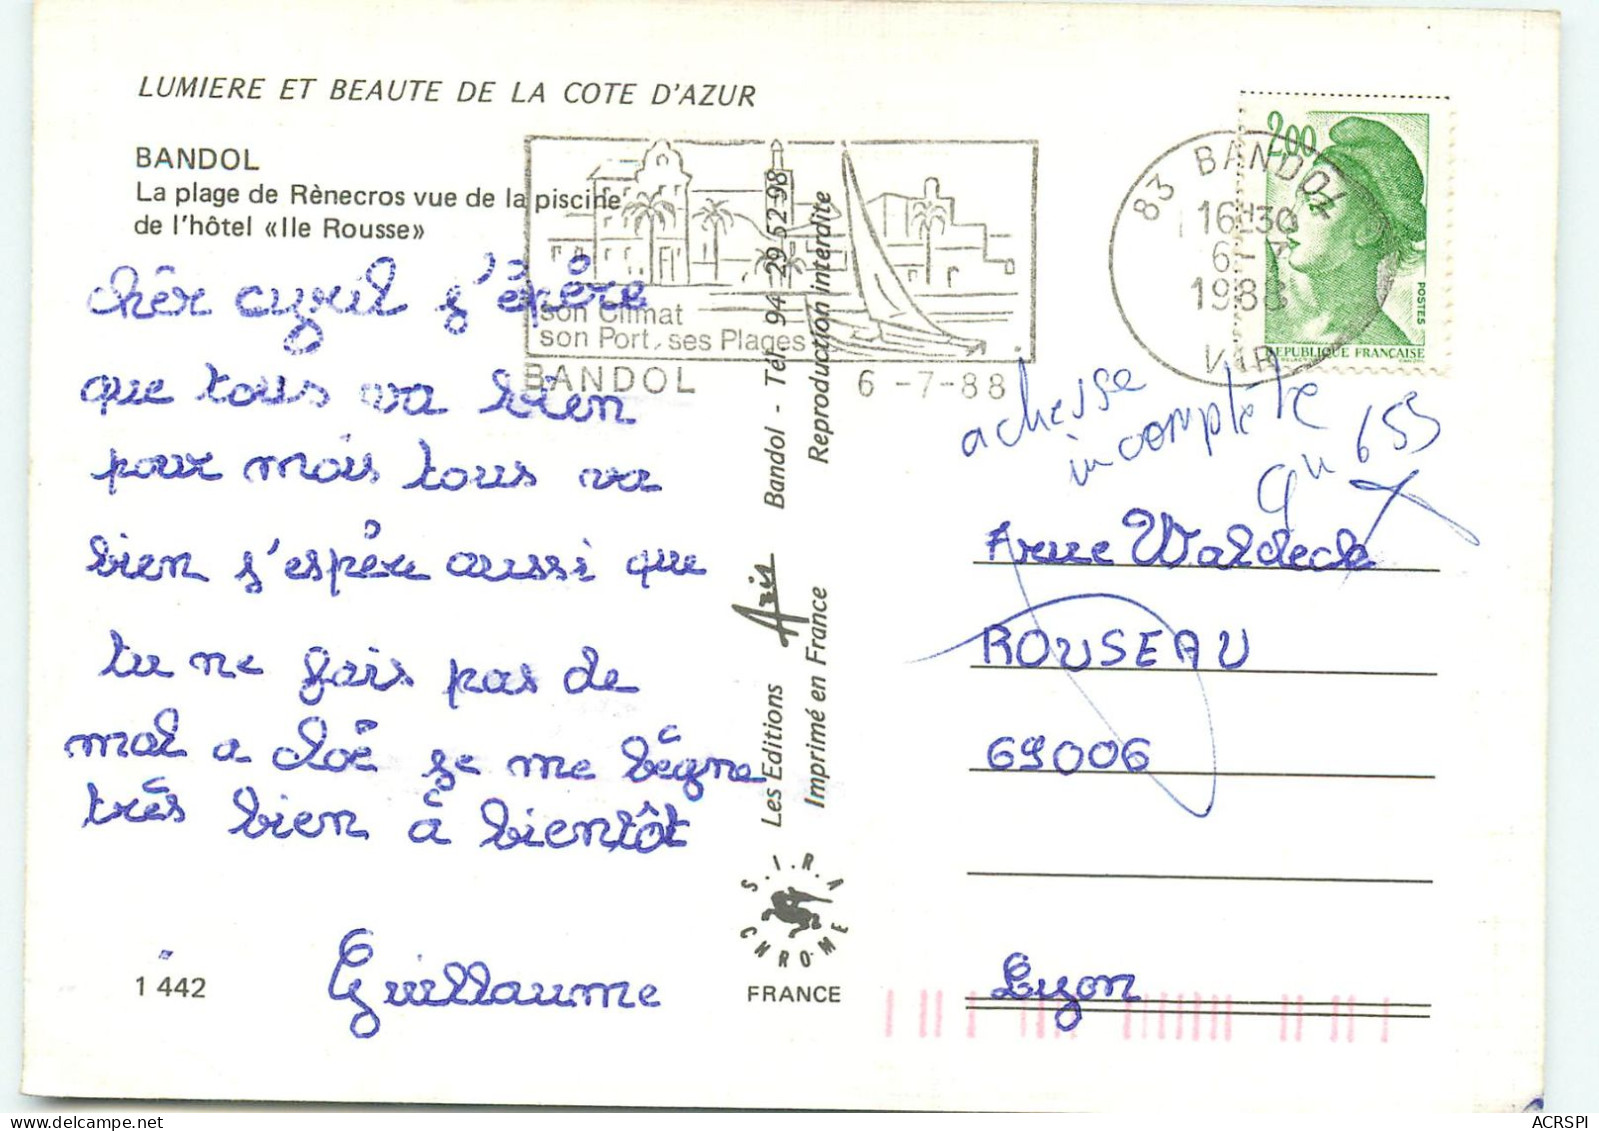 LUMIERE ET BEAUTE DE LA COTE D'AZUR
BANDOL
La plage de Rènecros vue de la piscine
de l'hôtel «Ile Rousse»
chèr cyril j'éspére
que tous va bien
pour mois tous va
bien j'espère aussi que
tu ne fais pas de
mal a cloë je me bégne
très bien à bientôt
Guillaume
1 442
son Climat
son Port, ses Plages
BANDOL 6 -7-88
Les Editions Aris Bandol - Tél. 94 29 52 98
Imprimé en France Reproduction interdite
S.I.R.A
CHROME
FRANCE
83 BANDOL
16H30
6-7
1988
VAR
2,00
POSTES
REPUBLIQUE FRANÇAISE
adresse
incomplète
qu 655
Arue Waldeck
ROUSEAU
69006
Lyon
ACRSPI